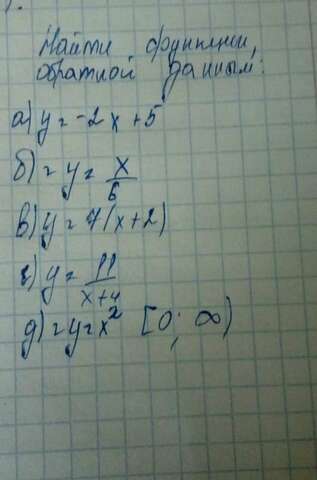 Найти функции,
обратной данным:
а) y = -2x + 5
б) = y = x/6
в) y = 7(x+2)
г) y = 11/x+4
д) = y = x² [0; ∞)